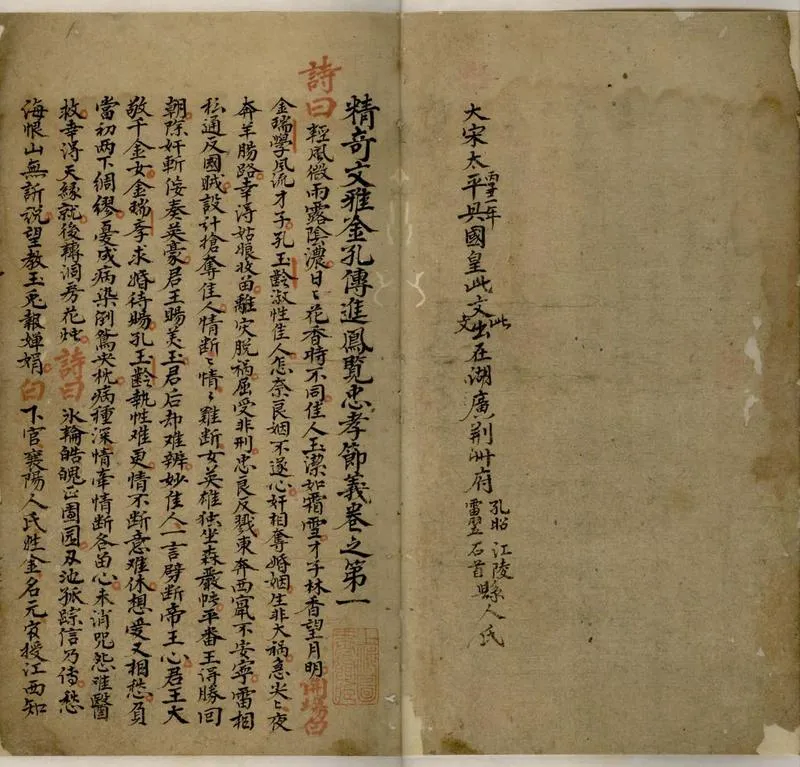 大宋太平興國皇此文出在湖廣荆州府
年
此文
孔昭 江陵
雷翌 石首
縣人氏
精奇文雅金孔傳進鳳覽忠孝節義卷之第一
詩曰 輕風微雨露陰濃日〻花香時不同佳人玉潔如霜雪才子林香望月明開場白
金瑞學風流才子孔玉齡淑性佳人怎奈良姻不遂心奸相奪婚姻生非大禍急尖〻夜
奔羊腸路幸淂姑娘收留離灾脱禍屈受非刑忠良反戮東奔西竄不安寧雷相
私通反國賊設計搶奪佳人情断〻情〻難断女英雄独坐森嚴帳平番王得勝回
朝除奸斬佞奏英豪君王賜美玉君后却难辨妙佳人一言劈断帝王心君王大
敬千金女金瑞孝求婚待賜孔玉齡執性难更情不断意难休想愛又相愁負
當初两下綢繆憂成病染倒鴛央枕病種深情牽情断各留心未消咒怨难醫
救幸淂天緣就後轉洞房花烛 詩曰 氷輪皓魄正圓圓池孤踪信乃傳愁
海恨山無訴説望教玉兎報嬋娟白下官襄陽人氏姓金名元授江西知